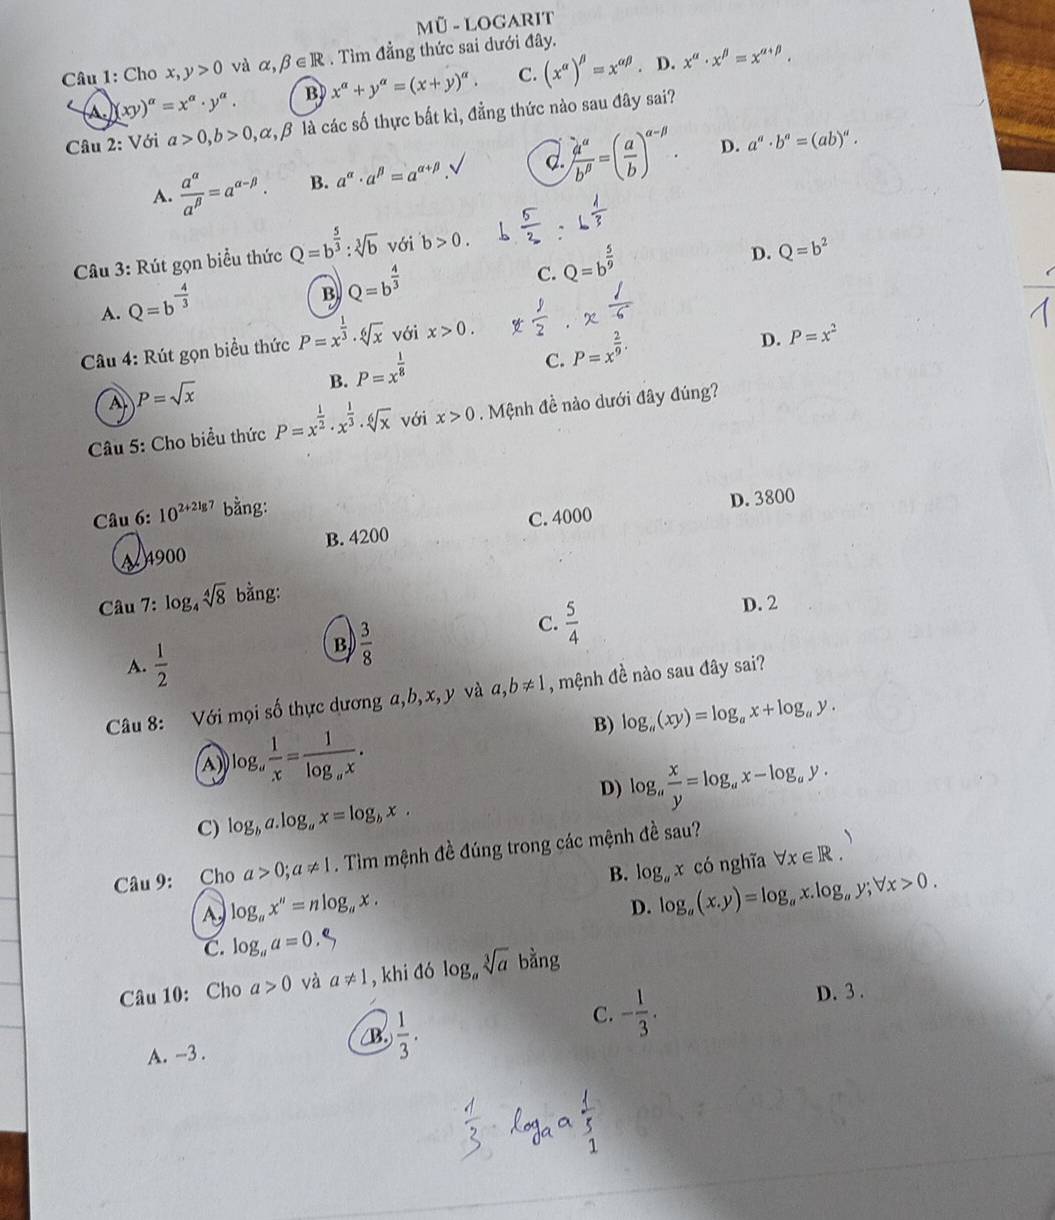 MŨ - LOGARIT
Câu 1: Cho x, y > 0 và α, β ∈ ℝ . Tìm đẳng thức sai dưới đây.
A. (xy)^α = x^α · y^α . B. x^α + y^α = (x + y)^α . C. (x^α)^β = x^{αβ} . D. x^α · x^β = x^{α+β} .
Câu 2: Với a > 0, b > 0, α, β là các số thực bất kì, đẳng thức nào sau đây sai?
A. a^α/a^β = a^{α-β} . B. a^α · a^β = a^{α+β} . ✓ C. a^α/b^β = (a/b)^{α-β} . D. a^α · b^α = (ab)^α .
Câu 3: Rút gọn biểu thức Q = b^{5/3} : ∛b với b > 0 . b^{5/3} : b^{1/3}
A. Q = b^{-4/3} B. Q = b^{4/3} C. Q = b^{5/9} D. Q = b^2
Câu 4: Rút gọn biểu thức P = x^{1/3} · ⁶√x với x > 0 . x^{1/2} . x^{1/6}
A. P = √x B. P = x^{1/8} C. P = x^{2/9} . D. P = x^2
Câu 5: Cho biểu thức P = x^{1/2} · x^{1/3} · ⁶√x với x > 0 . Mệnh đề nào dưới đây đúng?
Câu 6: 10^{2+2lg7} bằng:
A. 4900 B. 4200 C. 4000 D. 3800
Câu 7: log_4 ⁴√8 bằng:
A. 1/2 B. 3/8 C. 5/4 D. 2
Câu 8: Với mọi số thực dương a, b, x, y và a, b ≠ 1 , mệnh đề nào sau đây sai?
A) log_a 1/x = 1/log_a x . B) log_a(xy) = log_a x + log_a y .
C) log_b a.log_a x = log_b x . D) log_a x/y = log_a x - log_a y .
Câu 9: Cho a > 0; a ≠ 1 . Tìm mệnh đề đúng trong các mệnh đề sau?
A. log_a x^n = n log_a x . B. log_a x có nghĩa ∀x ∈ ℝ .
C. log_a a = 0 . D. log_a(x.y) = log_a x.log_a y; ∀x > 0 .
Câu 10: Cho a > 0 và a ≠ 1 , khi đó log_a ∛a bằng
A. -3 . B. 1/3 . C. -1/3 . D. 3 .
1/3 log_a a
1